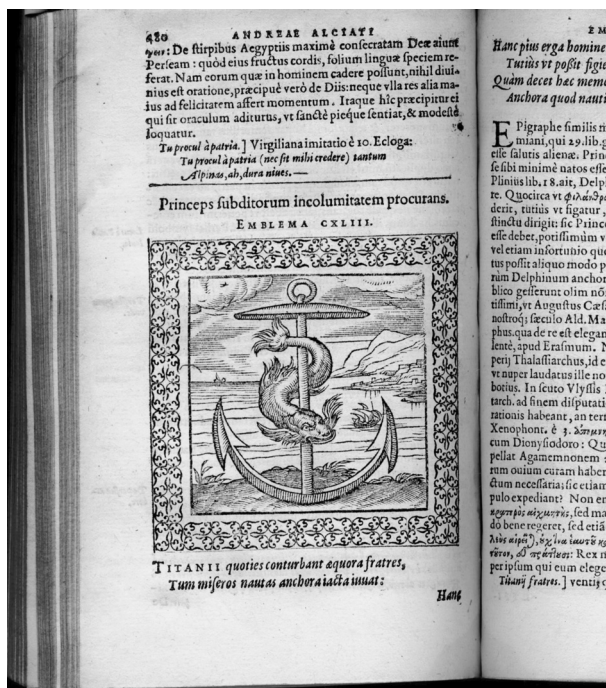 480 ANDREAE ALCIATI
De ſtirpibus Aegyptiis maximè conſecratam Deæ aiunt
Perſeam: quòd eius fructus cordis, folium linguæ ſpeciem re-
ferat. Nam eorum quæ in hominem cadere poſſunt, nihil diui-
nius eſt oratione, præcipuè verò de Diis: neque vlla res alia ma-
ius ad felicitatem affert momentum. Itaque hîc præcipitur ei
qui ſit oraculum aditurus, vt ſanctè pieque ſentiat, & modeſtè
loquatur.
Tu procul à patria.] Virgiliana imitatio è 10. Ecloga:
Tu procul à patria (nec ſit mihi credere) tantum
Alpinas, ah, dura niues.—
Princeps ſubditorum incolumitatem procurans.
EMBLEMA CXLIII.
TITANII quoties conturbant æquora fratres,
Tum miſeros nautas anchora iacta iuuat:
Hanc
EM
Hanc pius erga homine
Tutiùs vt poßit figie
Quàm decet hæc memo
Anchora quod nauti
EPigraphe ſimilis
miani, qui 29. lib. g
eſſe ſalutis alienæ. Prin
ſe ſibi minimè natos eſſe
Plinius lib. 18. ait, Delp
te. Quocirca vt
derit, tutiùs vt figatur,
ſtinctu dirigit: ſic Princ
eſſe debet, potiſſimùm v
vel etiam infortunio que
tus poſſit aliquo modo p
rùm Delphinum anchor
blico geſſerunt olim
tiſſimi, vt Auguſtus Cæſ
noſtroq; ſæculo Ald. Ma
phus. qua de re eſt elegan
lentè, apud Eraſmum. N
perij Thalaſſiarchus, id e
vt nuper laudatus ille no
botius. In ſcuto Vlyſſis
tarch. ad finem diſputati
rationis habeant, an ter
Xenophont. è 3.
cum Dionyſodoro: Qu
pellat Agamemnonem
rum ouium curam haber
ctum neceſſaria; ſic etiam
pulo expediant? Non er
ſed ma
dò bene regeret, ſed etiã
Rex n
per ipſum qui eum elege
Titanij fratres.] ventis